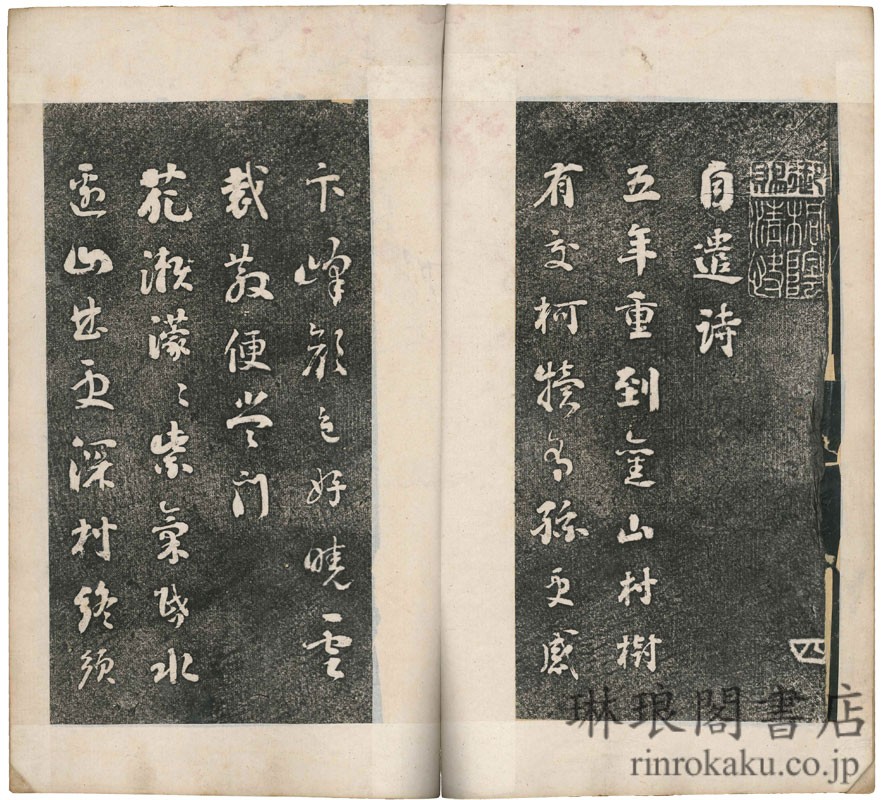 自遣詩
五年重到舊山村樹
有交柯犢有孫更感
四
卞峰顏色好曉雲
裁散便當門
花瀨濛〻紫氣昏水
邊山曲更深村終須
琳琅閣書店
rinrokaku.co.jp